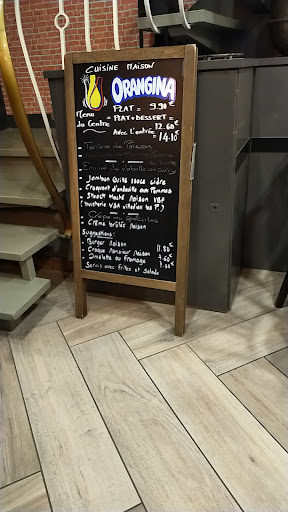 CUISINE MAISON
ORANGINA
PLAT = 9.90€
Menu du Centre
PLAT + DESSERT = 12.60€
Avec L'entrée 14.10€
Terrine de Poisson
Jambon Cuite sauce cidre
Croquant d'andouille aux Pommes
Steack Haché Maison VBF
Crème brûlée Maison
Suggestions:
- Burger Maison
- Croque Monsieur Maison
- Omelette au Fromage
Servis avec Frites et Salade